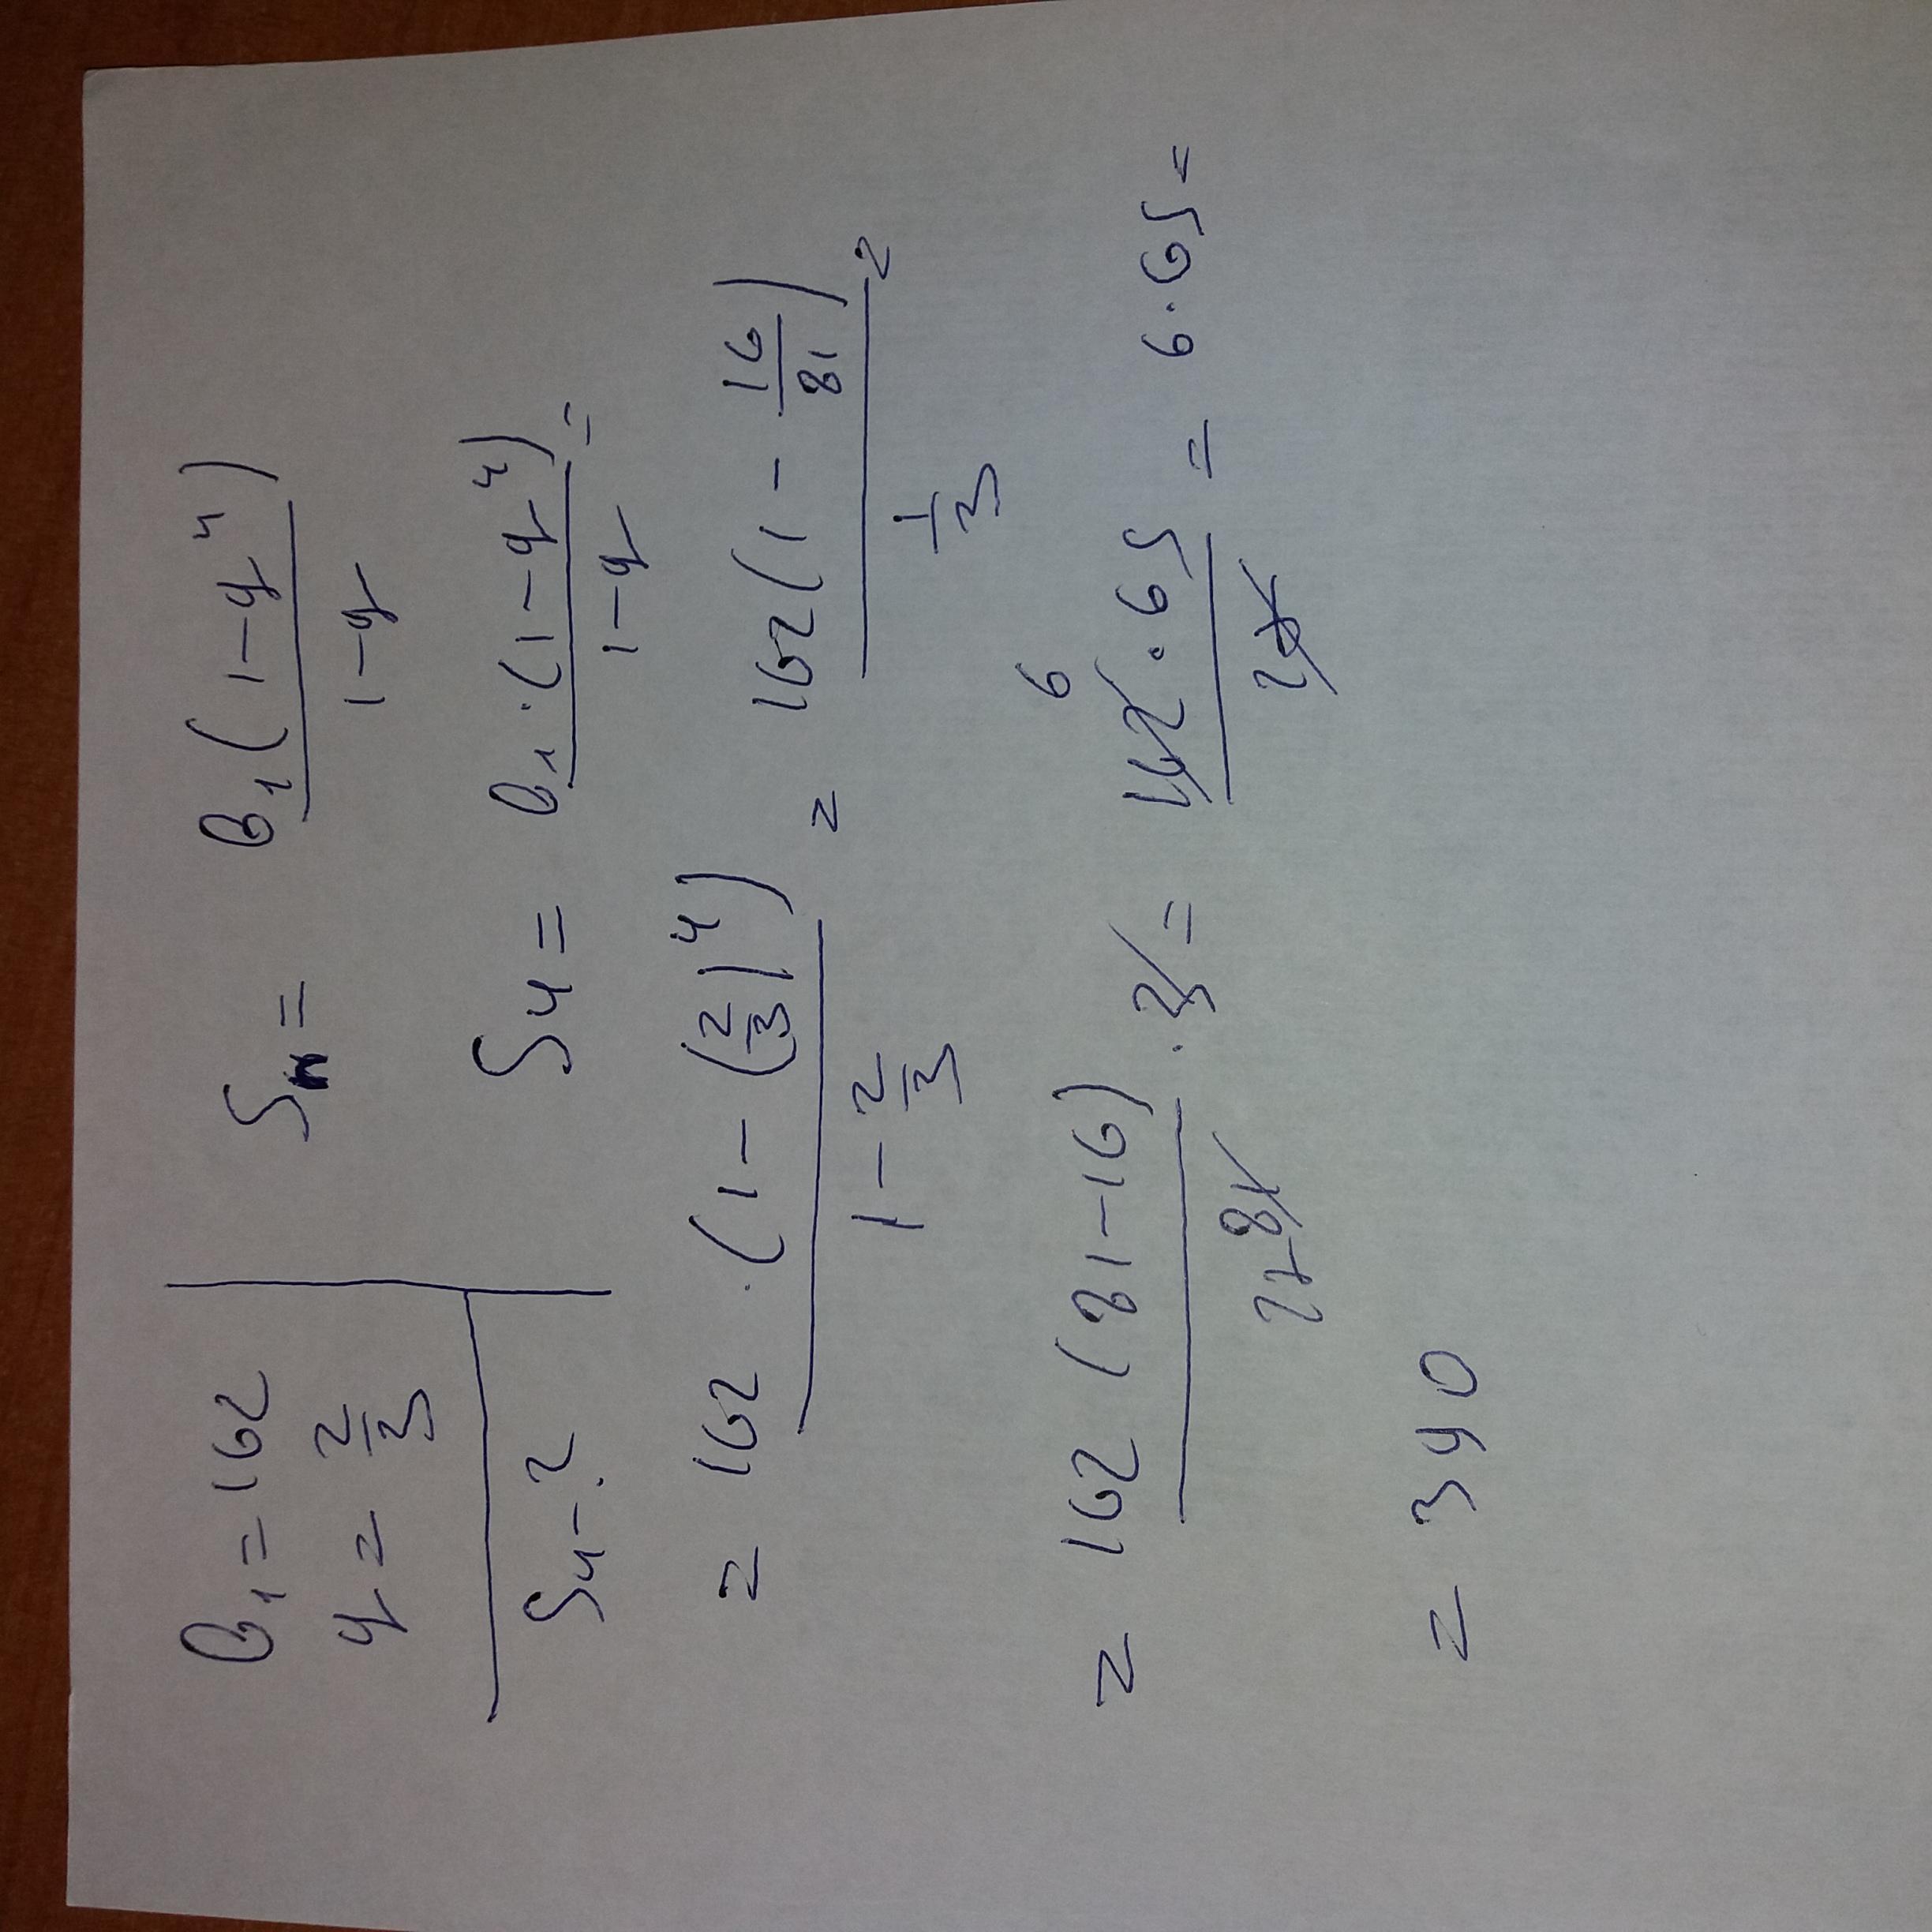 b₁ = 162
q = 2/3
S₄ - ?
Sₙ = b₁(1-q⁴)/(1-q)
S₄ = b₁·(1-q⁴)/(1-q) =
= 162·(1-(2/3)⁴)/(1-2/3) = 162(1-16/81)/(1/3) =
= 162(81-16)·3/81 27 = 162·65/27 6 = 6·65 =
= 390